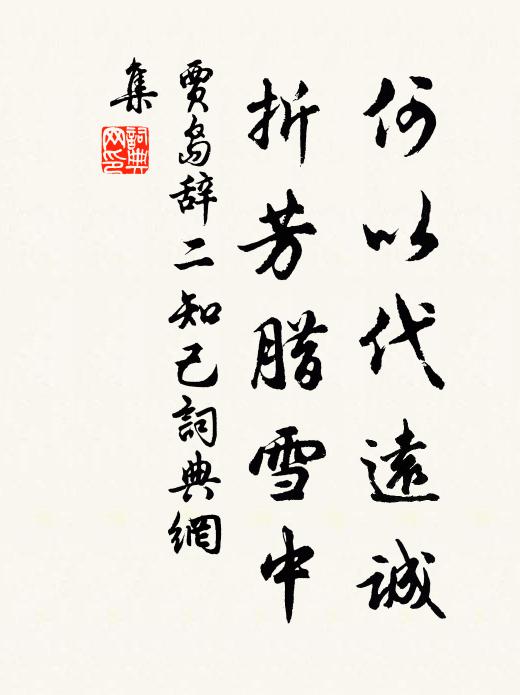 何以代遠誠
折芳腊雪中
賈島辞二知己詞典網
集
詞典
网印